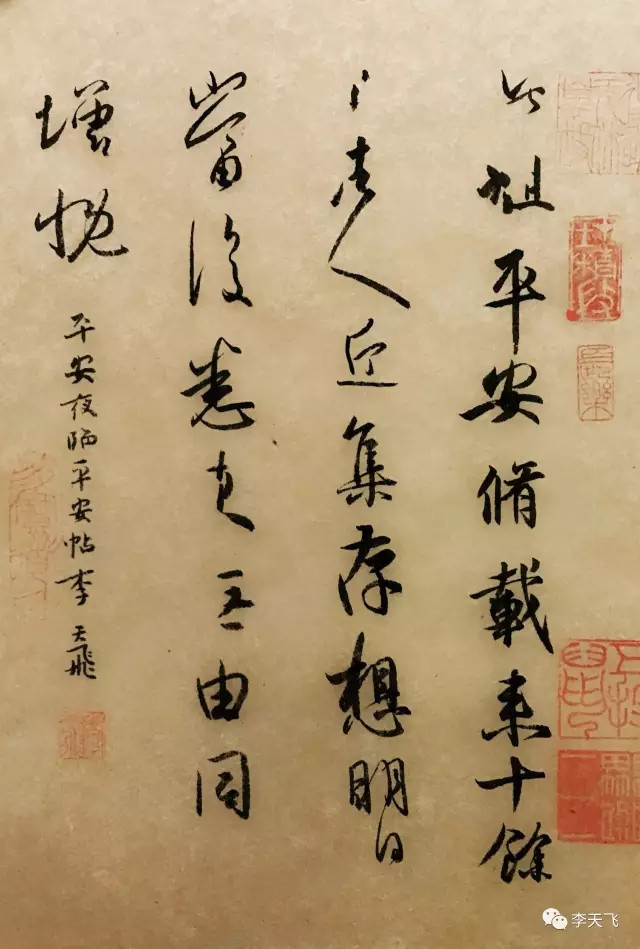 此粗平安脩載来十餘
日諸人近集存想明日
當復悉来無由同
增慨
平安夜晒平安帖李天飛
長樂
李天飞